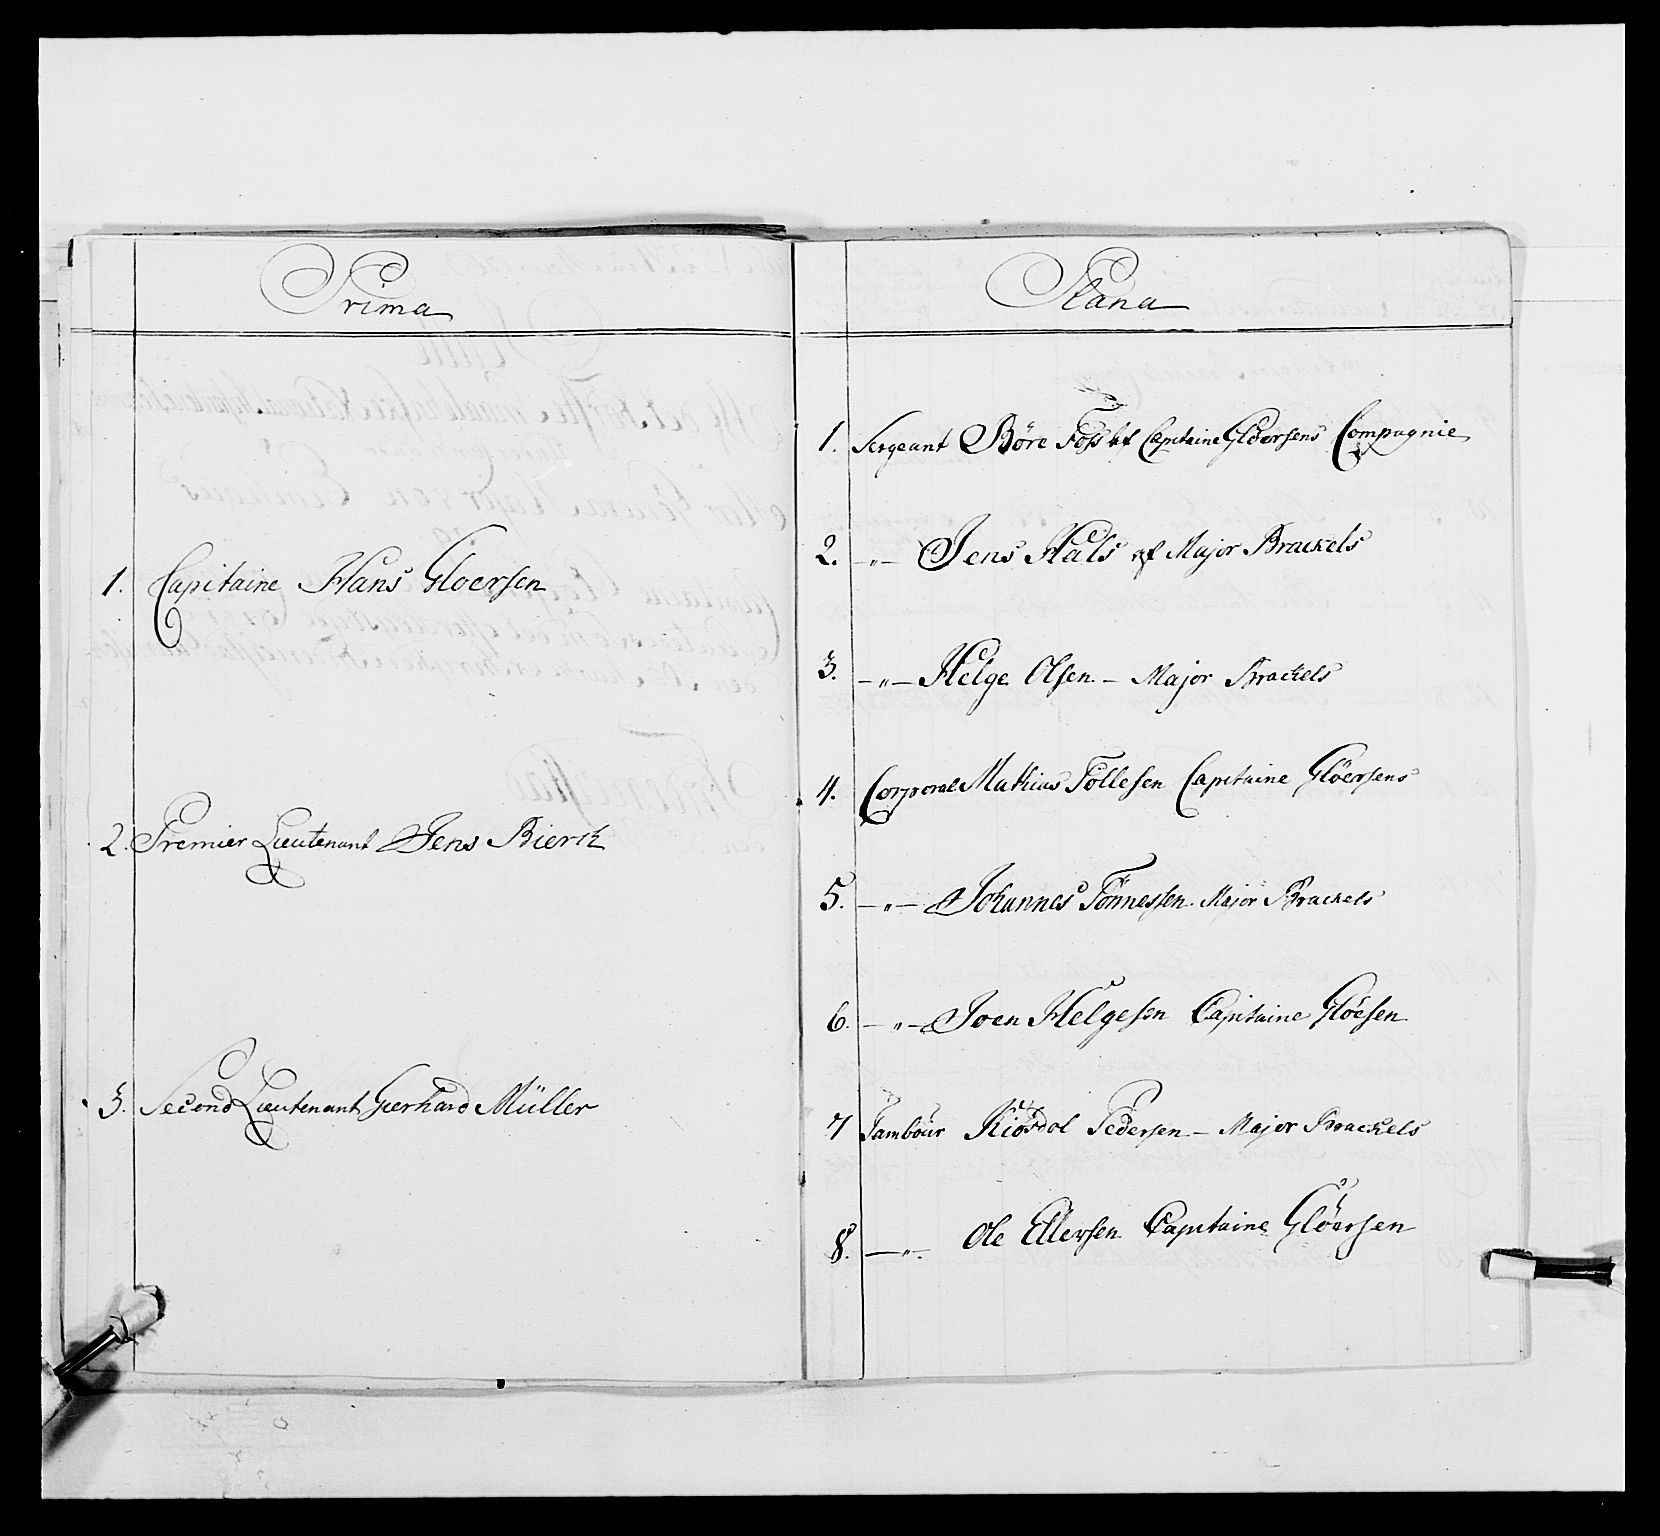 Prima
1. Capitaine Hans Gloersen
2. Premier Lieutenant Jens Bierch
3. Second Lieutenant Gerhard Müller
Plana
1. Sergeant Böre Foss af Capitaine Gloersens Compagnie
2. —"— Jens Hals af Major Brackels
3. —"— Helge Olsen — Major Brackels
4. Corporal Mathias Tollefsen Capitaine Glöersens
5. —"— Johannes Tönnessen Major Brackels
6. —"— Joen Helgesen Capitaine Glöesen
7 Tambour Pedersen — Major Brackels
8. —"— Ole Ellersen Capitaine Glöersen